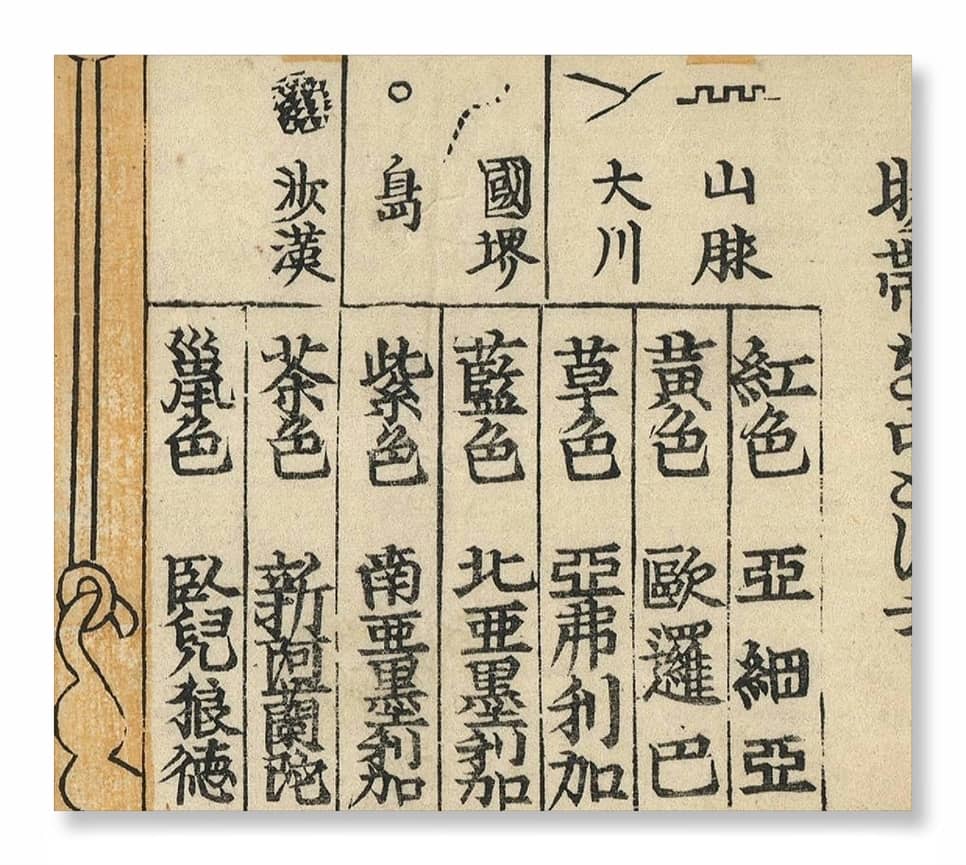 山脉
大川
國堺
島
沙漢
紅色 亞細亞
黃色 歐邏巴
草色 亞弗利加
藍色 北亜墨利加
紫色 南亜墨利加
茶色 新阿蘭陀
鼠色 臥兒狼徳